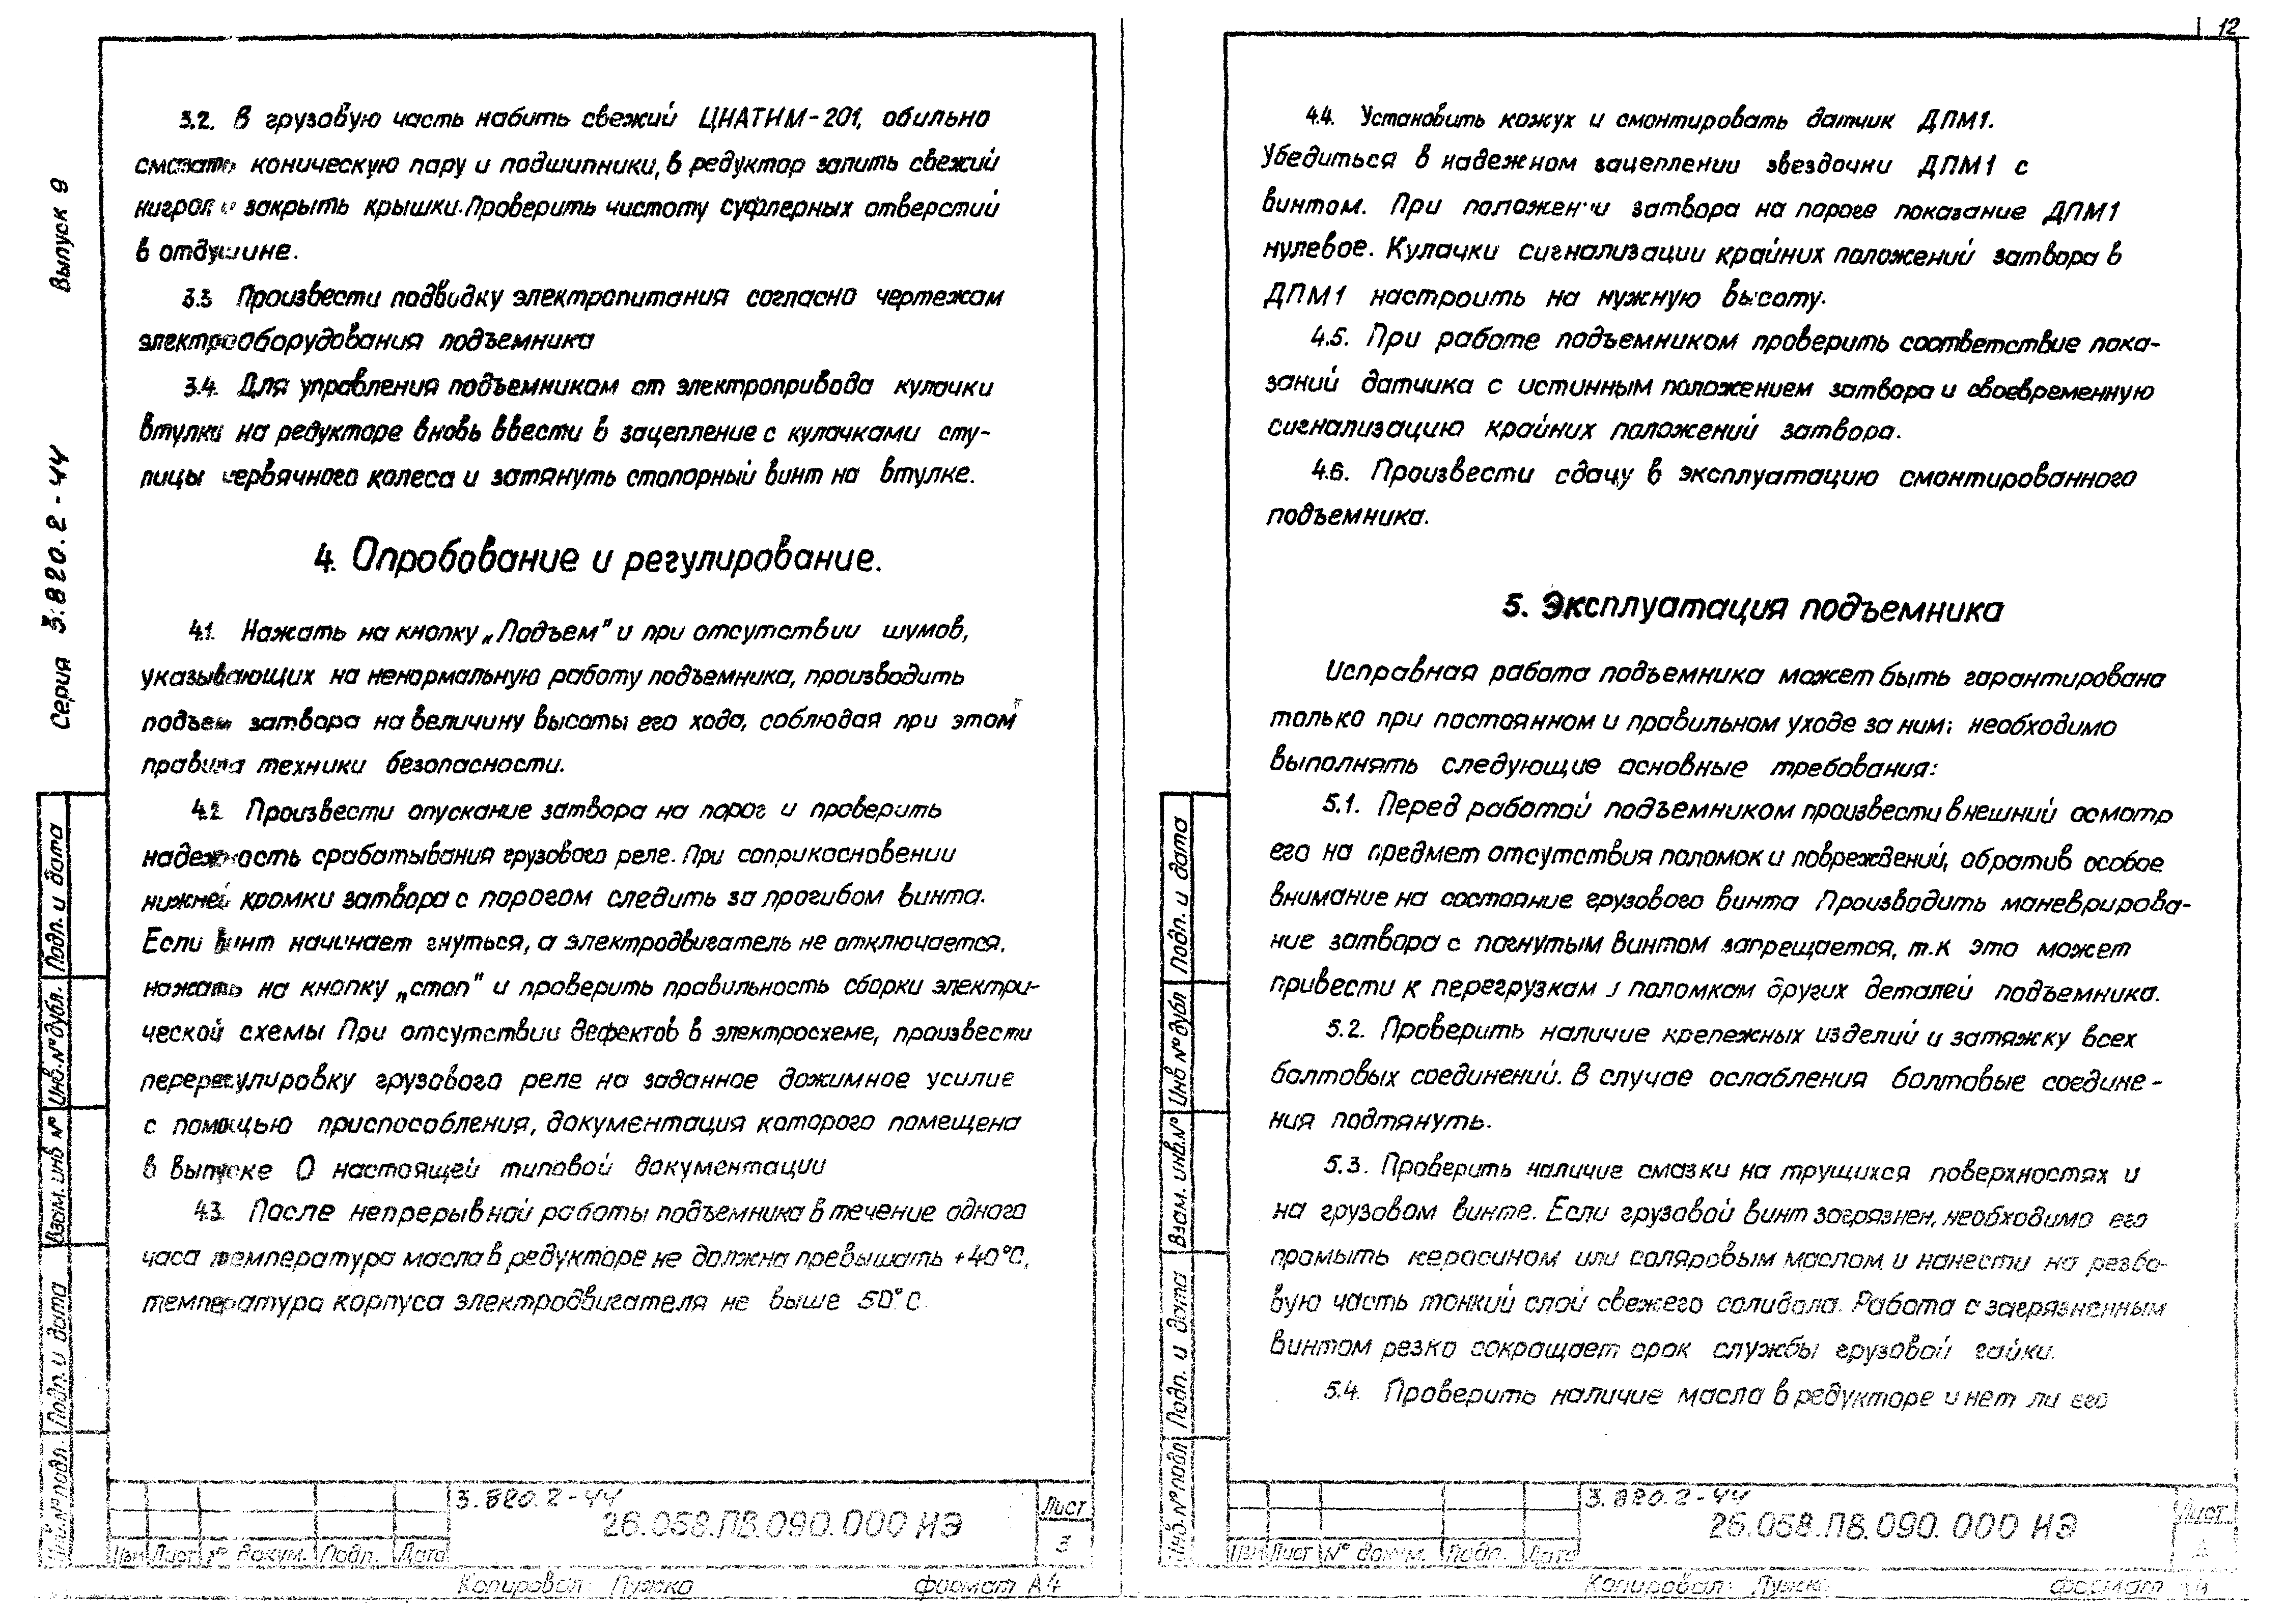 12
Серия 3.820.2-44 Выпуск 9
3.2. В грузовую часть набить свежий ЦИАТИМ-201, обильно
смазать коническую пару и подшипники, в редуктор залить свежий
нигрол и закрыть крышки. Проверить чистоту суфлерных отверстий
в отдушине.
3.3 Произвести подводку электропитания согласно чертежам
электрооборудования подъемника
3.4. Для управления подъемником от электропривода кулачки
втулки на редукторе вновь ввести в зацепление с кулачками сту-
пицы червячного колеса и затянуть стопорный винт на втулке.
4. Опробование и регулирование.
4.1. Нажать на кнопку „Подъем" и при отсутствии шумов,
указывающих на ненормальную работу подъемника, производить
подъем затвора на величину высоты его хода, соблюдая при этом
правила техники безопасности.
4.2 Произвести опускание затвора на порог и проверить
надежность срабатывания грузового реле. При соприкосновении
нижней кромки затвора с порогом следить за прогибом винта.
Если винт начинает гнуться, а электродвигатель не отключается,
нажать на кнопку „стоп" и проверить правильность сборки электри-
ческой схемы При отсутствии дефектов в электросхеме, произвести
перерегулировку грузового реле на заданное дожимное усилие
с помощью приспособления, документация которого помещена
в выпуске 0 настоящей типовой документации
4.3 После непрерывной работы подъемника в течение одного
часа температура масла в редукторе не должна превышать +40°С,
температура корпуса электродвигателя не выше 50°С.
Подп. и дата
Инв.№ дубл.
Взам. инв №
Подп. и дата
Инв.№ подл.
3.820.2-44
26.058.ПВ.090.000 ИЭ
Лист
3
Изм Лист № докум. Подп. Дата
Копировал: Пужко формат А4
4.4. Установить кожух и смонтировать датчик ДПМ1.
Убедиться в надежном зацеплении звездочки ДПМ1 с
винтом. При положении затвора на пороге показание ДПМ1
нулевое. Кулачки сигнализации крайних положений затвора в
ДПМ1 настроить на нужную высоту.
4.5. При работе подъемником проверить соответствие пока-
заний датчика с истинным положением затвора и своевременную
сигнализацию крайних положений затвора.
4.6. Произвести сдачу в эксплуатацию смонтированного
подъемника.
5. Эксплуатация подъемника
Исправная работа подъемника может быть гарантирована
только при постоянном и правильном уходе за ним; необходимо
выполнять следующие основные требования:
5.1. Перед работой подъемником произвести внешний осмотр
его на предмет отсутствия поломок и повреждений, обратив особое
внимание на состояние грузового винта Производить маневрирова-
ние затвора с погнутым винтом запрещается, т.к это может
привести к перегрузкам и поломкам других деталей подъемника.
5.2. Проверить наличие крепежных изделий и затяжку всех
болтовых соединений. В случае ослабления болтовые соедине-
ния подтянуть.
5.3. Проверить наличие смазки на трущихся поверхностях и
на грузовом винте. Если грузовой винт загрязнен, необходимо его
промыть керосином или соляровым маслом и нанести на резьбо-
вую часть тонкий слой свежего солидола. Работа с загрязненным
винтом резко сокращает срок службы грузовой гайки.
5.4. Проверить наличие масла в редукторе и нет ли его
Подп. и дата
Инв № дубл
Взам. инв.№
Подп. и дата
Инв.№ подл
3.820.2-44
26.058.ПВ.090.000 ИЭ
Лист
Изм Лист № докум. Подп. Дата
Копировал: формат